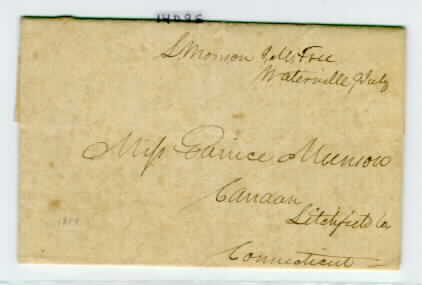 S Monson P.M. Free
Waterville 9 July
Miss Eunice Munson
Canaan
Litchfield Co
Connecticut